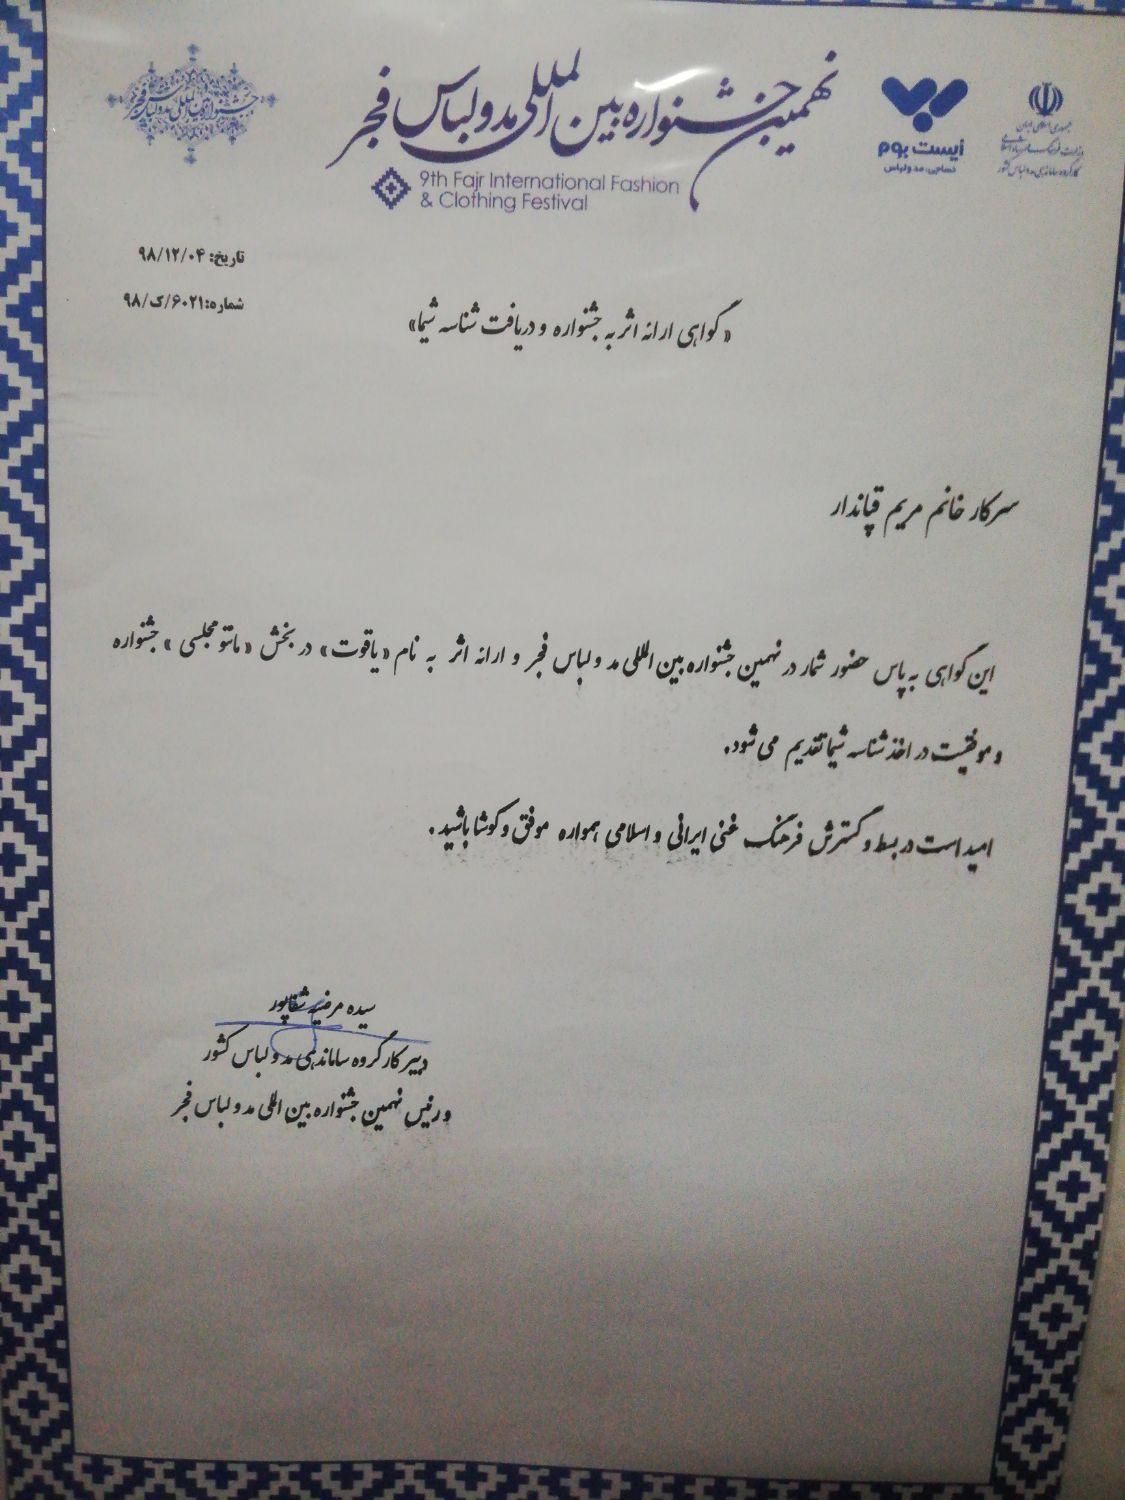 نهمین جشنواره بین المللی مد و لباس فجر
9th Fajr International Fashion
& Clothing Festival
جشنواره بین المللی مد و لباس فجر
زیست بوم
نساجی، مد و لباس
جمهوری اسلامی ایران
وزارت فرهنگ و ارشاد اسلامی
کارگروه ساماندهی مد و لباس کشور
تاریخ: ۹۸/۱۲/۰۴
شماره: ۹۸/ک/۶۰۲۱
«گواهی ارائه اثر به جشنواره و دریافت شناسه شیما»
سرکار خانم مریم قپاندار
این گواهی به پاس حضور شمار در نهمین جشنواره بین المللی مد و لباس فجر و ارائه اثر به نام «یاقوت» در بخش «مانتو مجلسی» جشنواره
و موفقیت در اخذ شناسه شیما تقدیم می شود.
امید است در بسط و گسترش فرهنگ غنی ایرانی و اسلامی همواره موفق و کوشا باشید.
سیده مرضیه شفاپور
دبیر کارگروه ساماندهی مد و لباس کشور
و رئیس نهمین جشنواره بین المللی مد و لباس فجر